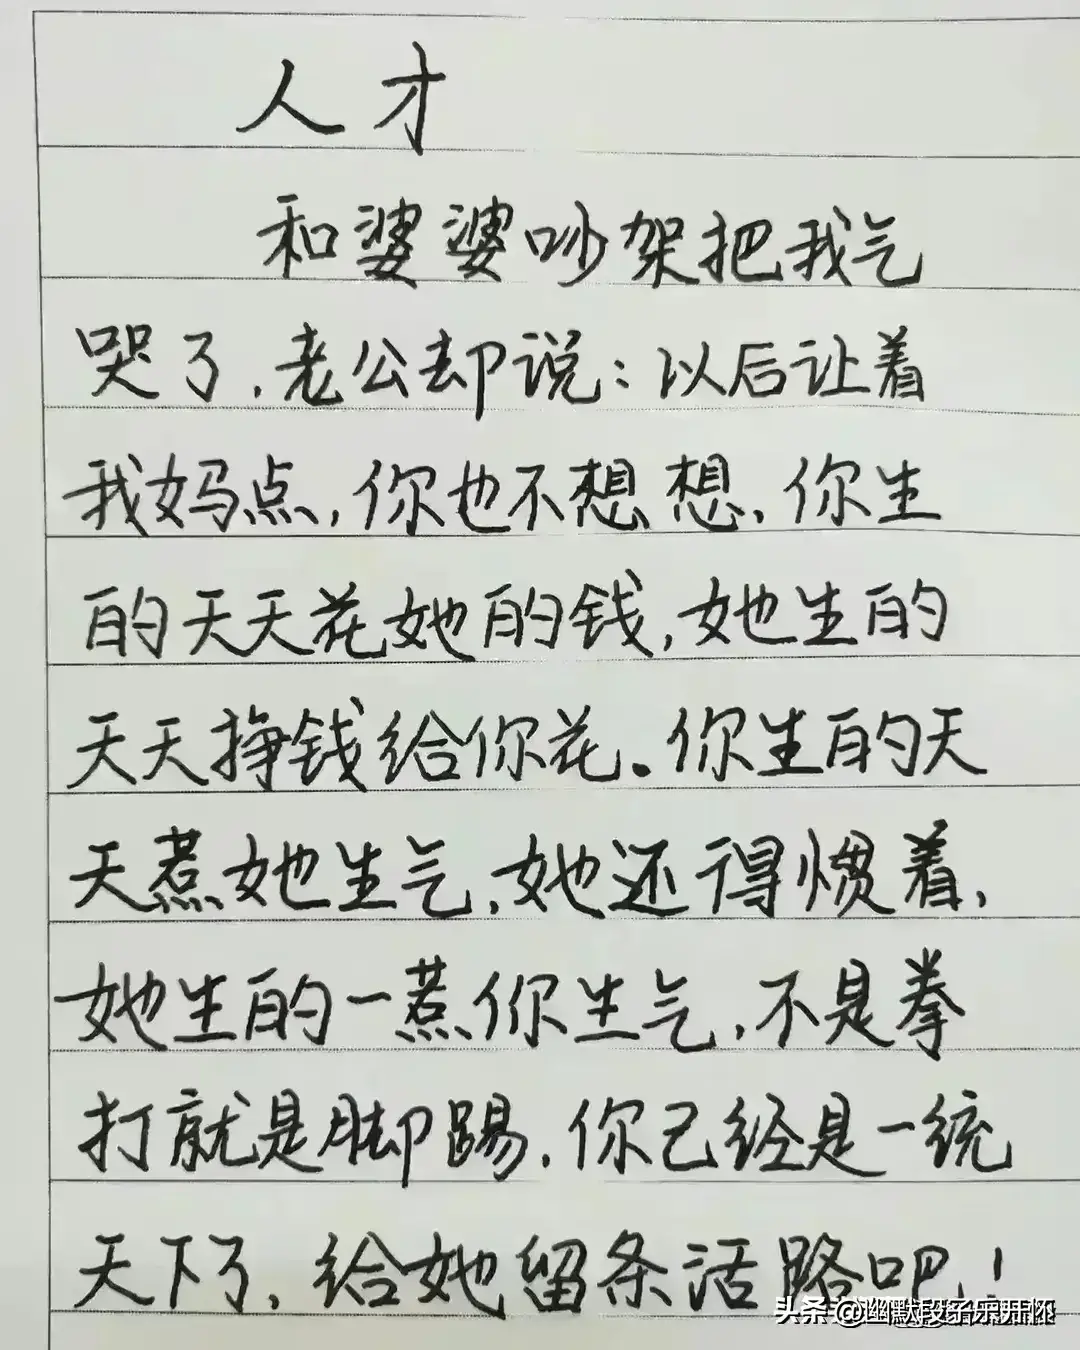 人才
和婆婆吵架把我气
哭了,老公却说:以后让着
我妈点,你也不想想,你生
的天天花她的钱,她生的
天天挣钱给你花。你生的天
天惹她生气,她还得惯着,
她生的一惹你生气,不是拳
打就是脚踢,你已经是一统
天下了,给她留条活路吧!
头条@幽默段子乐开怀